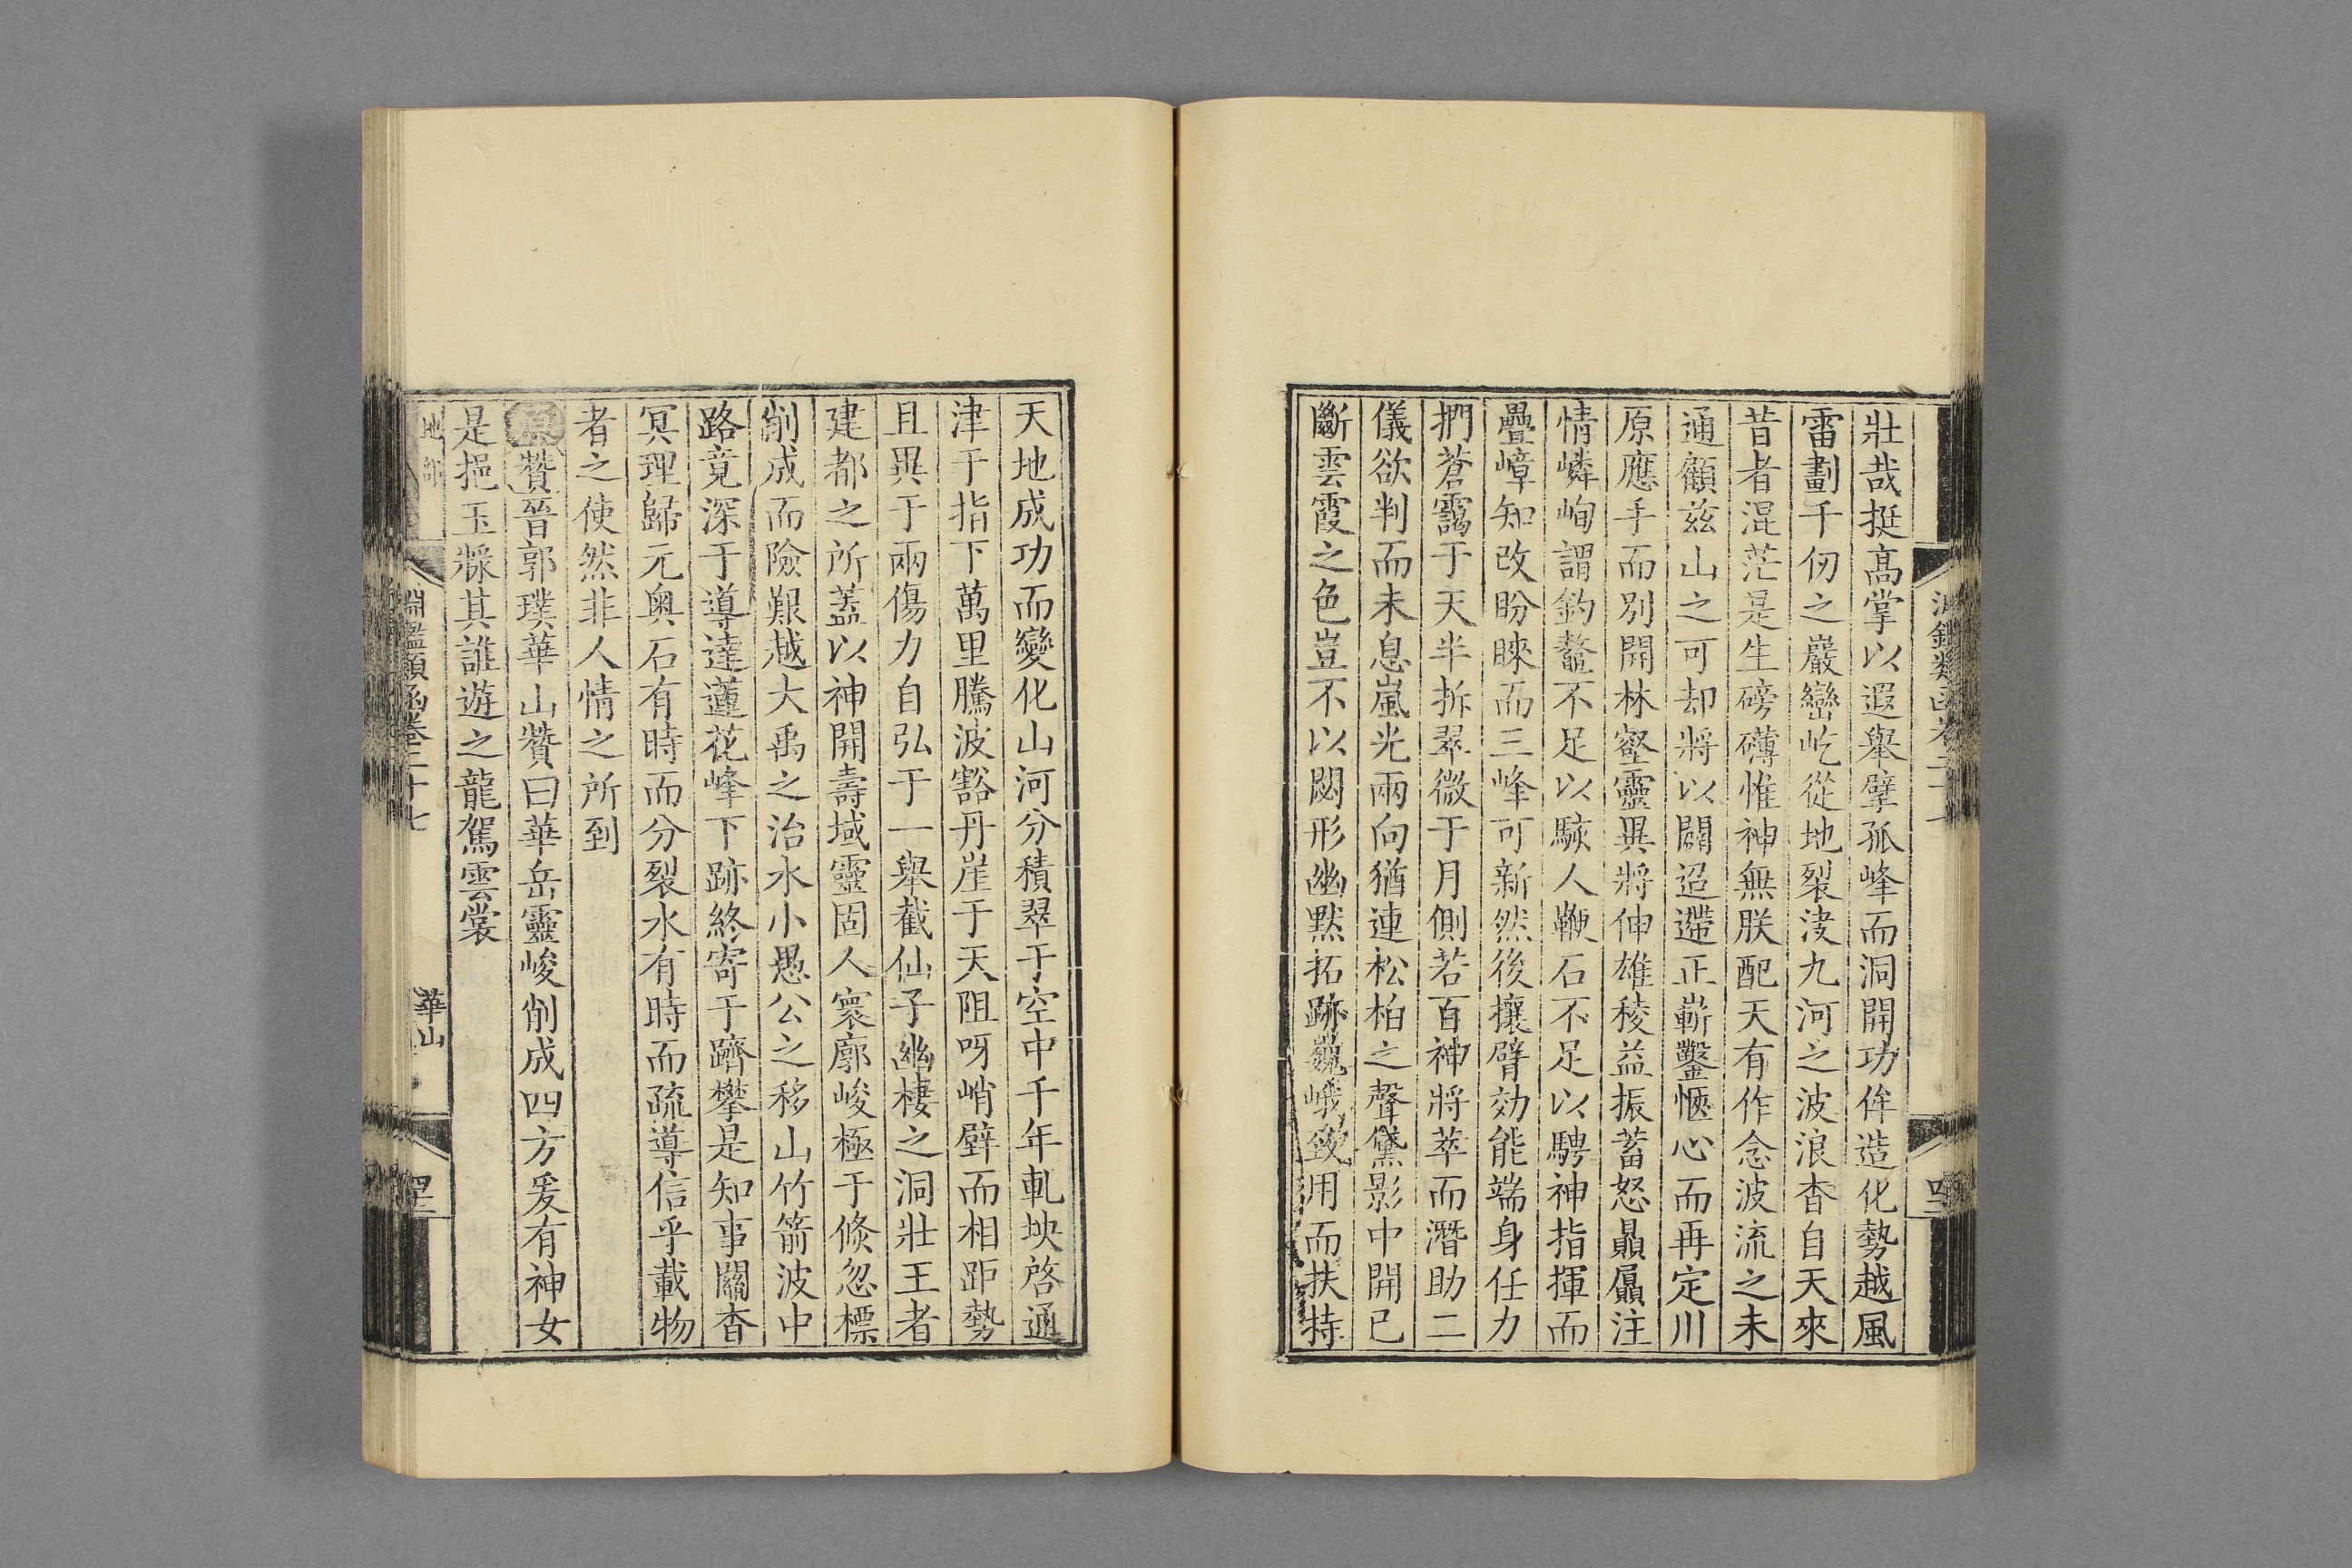 壯哉挺高掌以遐舉擘孤峰而洞開功侔造化勢越風
雷劃千仞之巖巒屹從地裂浚九河之波浪杳自天來
昔者混茫是生磅礡惟神無朕配天有作念波流之未
通顧兹山之可却將以闢迢遰正嶄鑿愜心而再定川
原應手而別開林壑靈異將伸雄稜益振蓄怒贔屭注
情嶙峋謂釣鼇不足以駭人鞭石不足以騁神指揮而
疊嶂知改盼睞而三峰可新然後攘臂効能端身任力
捫蒼靄于天半拆翠微于月側若百神將萃而潛助二
儀欲判而未息嵐光兩向猶連松柏之聲黛影中開已
斷雲霞之色豈不以閟形幽默拓跡巍峨致用而扶持
天地成功而變化山河分積翠于空中千年軋坱啓通
津于指下萬里騰波豁丹崖于天阻呀峭壁而相距勢
且異于兩傷力自弘于一舉截仙子幽棲之洞壯王者
建都之所蓋以神開壽域靈固人寰廓峻極于倐忽標
削成而險艱越大禹之治水小愚公之移山竹箭波中
路竟深于導達蓮花峰下跡終寄于躋攀是知事關杳
冥理歸元奥石有時而分裂水有時而疏導信乎載物
者之使然非人情之所到
原贊晉郭璞華山贊曰華岳靈峻削成四方爰有神女
是挹玉漿其誰遊之龍駕雲裳
地部
淵鑑類函卷二十七
華山